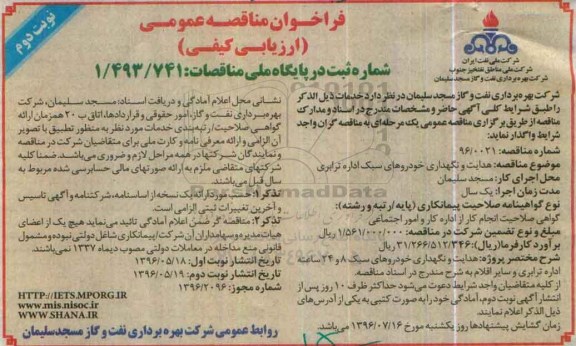 نوبت دوم
فراخوان مناقصه عمومی
(ارزیابی کیفی)
شماره ثبت در پایگاه ملی مناقصات: ۱/۴۹۳/۷۴۱
شرکت ملی نفت ایران
شرکت ملی مناطق نفتخیز جنوب
شرکت بهره برداری نفت و گاز مسجدسلیمان
شرکت بهره برداری نفت و گاز مسجدسلیمان در نظر دارد خدمات ذیل الذکر
را طبق شرایط کلی آگهی حاضر و مشخصات مندرج در اسناد و مدارک
مناقصه از طریق برگزاری مناقصه عمومی یک مرحله‌ای به مناقصه گران واجد
شرایط واگذار نماید:
شماره مناقصه: ۹۶/۰۰۲۱
موضوع مناقصه: هدایت و نگهداری خودروهای سبک اداره ترابری
محل اجرای کار: مسجد سلیمان
مدت زمان اجرا: یک سال
نوع گواهینامه صلاحیت پیمانکاری (پایه/رتبه و رشته):
گواهی صلاحیت انجام کار از اداره کار و امور اجتماعی
مبلغ و نوع تضمین شرکت در مناقصه: ۱/۵۶۱/۰۰۰/۰۰۰ ریال
برآورد کارفرما(ریال): ۳۱/۲۶۶/۵۱۲/۳۴۶ ریال
شرح مختصر پروژه: هدایت و نگهداری خودروهای سبک ۸ و ۲۴ ساعت
اداره ترابری و سایر اقلام به شرح مندرج در اسناد مناقصه.
از کلیه متقاضیان واجد شرایط دعوت می‌شود حداکثر ظرف ۱۰ روز پس از
انتشار آگهی نوبت دوم، آمادگی خود را به صورت کتبی به یکی از آدرس‌های
ذیل الذکر اعلام نمایند.
زمان گشایش پیشنهادها روز یکشنبه مورخ ۱۳۹۶/۰۷/۱۶ می‌باشد.
نشانی محل اعلام آمادگی و دریافت اسناد: مسجد سلیمان، شرکت
بهره برداری نفت و گاز، امور حقوقی و قراردادها، اتاق ب ۲۰ همزمان ارائه
گواهی صلاحیت/رتبه‌بندی خدمات مورد نظر به منظور تطبیق با تصویر
آن الزامی و ارائه معرفی نامه و کارت ملی برای متقاضیان شرکت در مناقصه
و نمایندگان شرکتها در همه مراحل لازم و ضروری می‌باشد. ضمنا کلیه
شرکتهای متقاضی ملزم به ارائه صورتهای مالی حسابرسی شده مربوط به
سال قبل می‌باشند.
تذکر۱: حسب مورد ارائه یک نسخه از اساسنامه، شرکتنامه و آگهی تاسیس
و آخرین تغییرات ثبتی الزامی است.
تذکر۲: مناقصه گر ضمن اعلام آمادگی تائید می‌نماید هیچ یک از اعضای
هیات مدیره و سهامداران آن شرکت/پیمانکاری شاغل دولتی نبوده و مشمول
قانونی منع مداخله در معاملات دولتی مصوب دیماه ۱۳۳۷ نمی‌باشند.
تاریخ انتشار نوبت اول: ۱۳۹۶/۰۵/۱۸
تاریخ انتشار نوبت دوم: ۱۳۹۶/۰۵/۱۹
شماره مجوز: ۱۳۹۶/۲۰۹۶
HTTP://IETS.MPORG.IR
www.mis.nisoc.ir
WWW.SHANA.IR
روابط عمومی شرکت بهره برداری نفت و گاز مسجدسلیمان